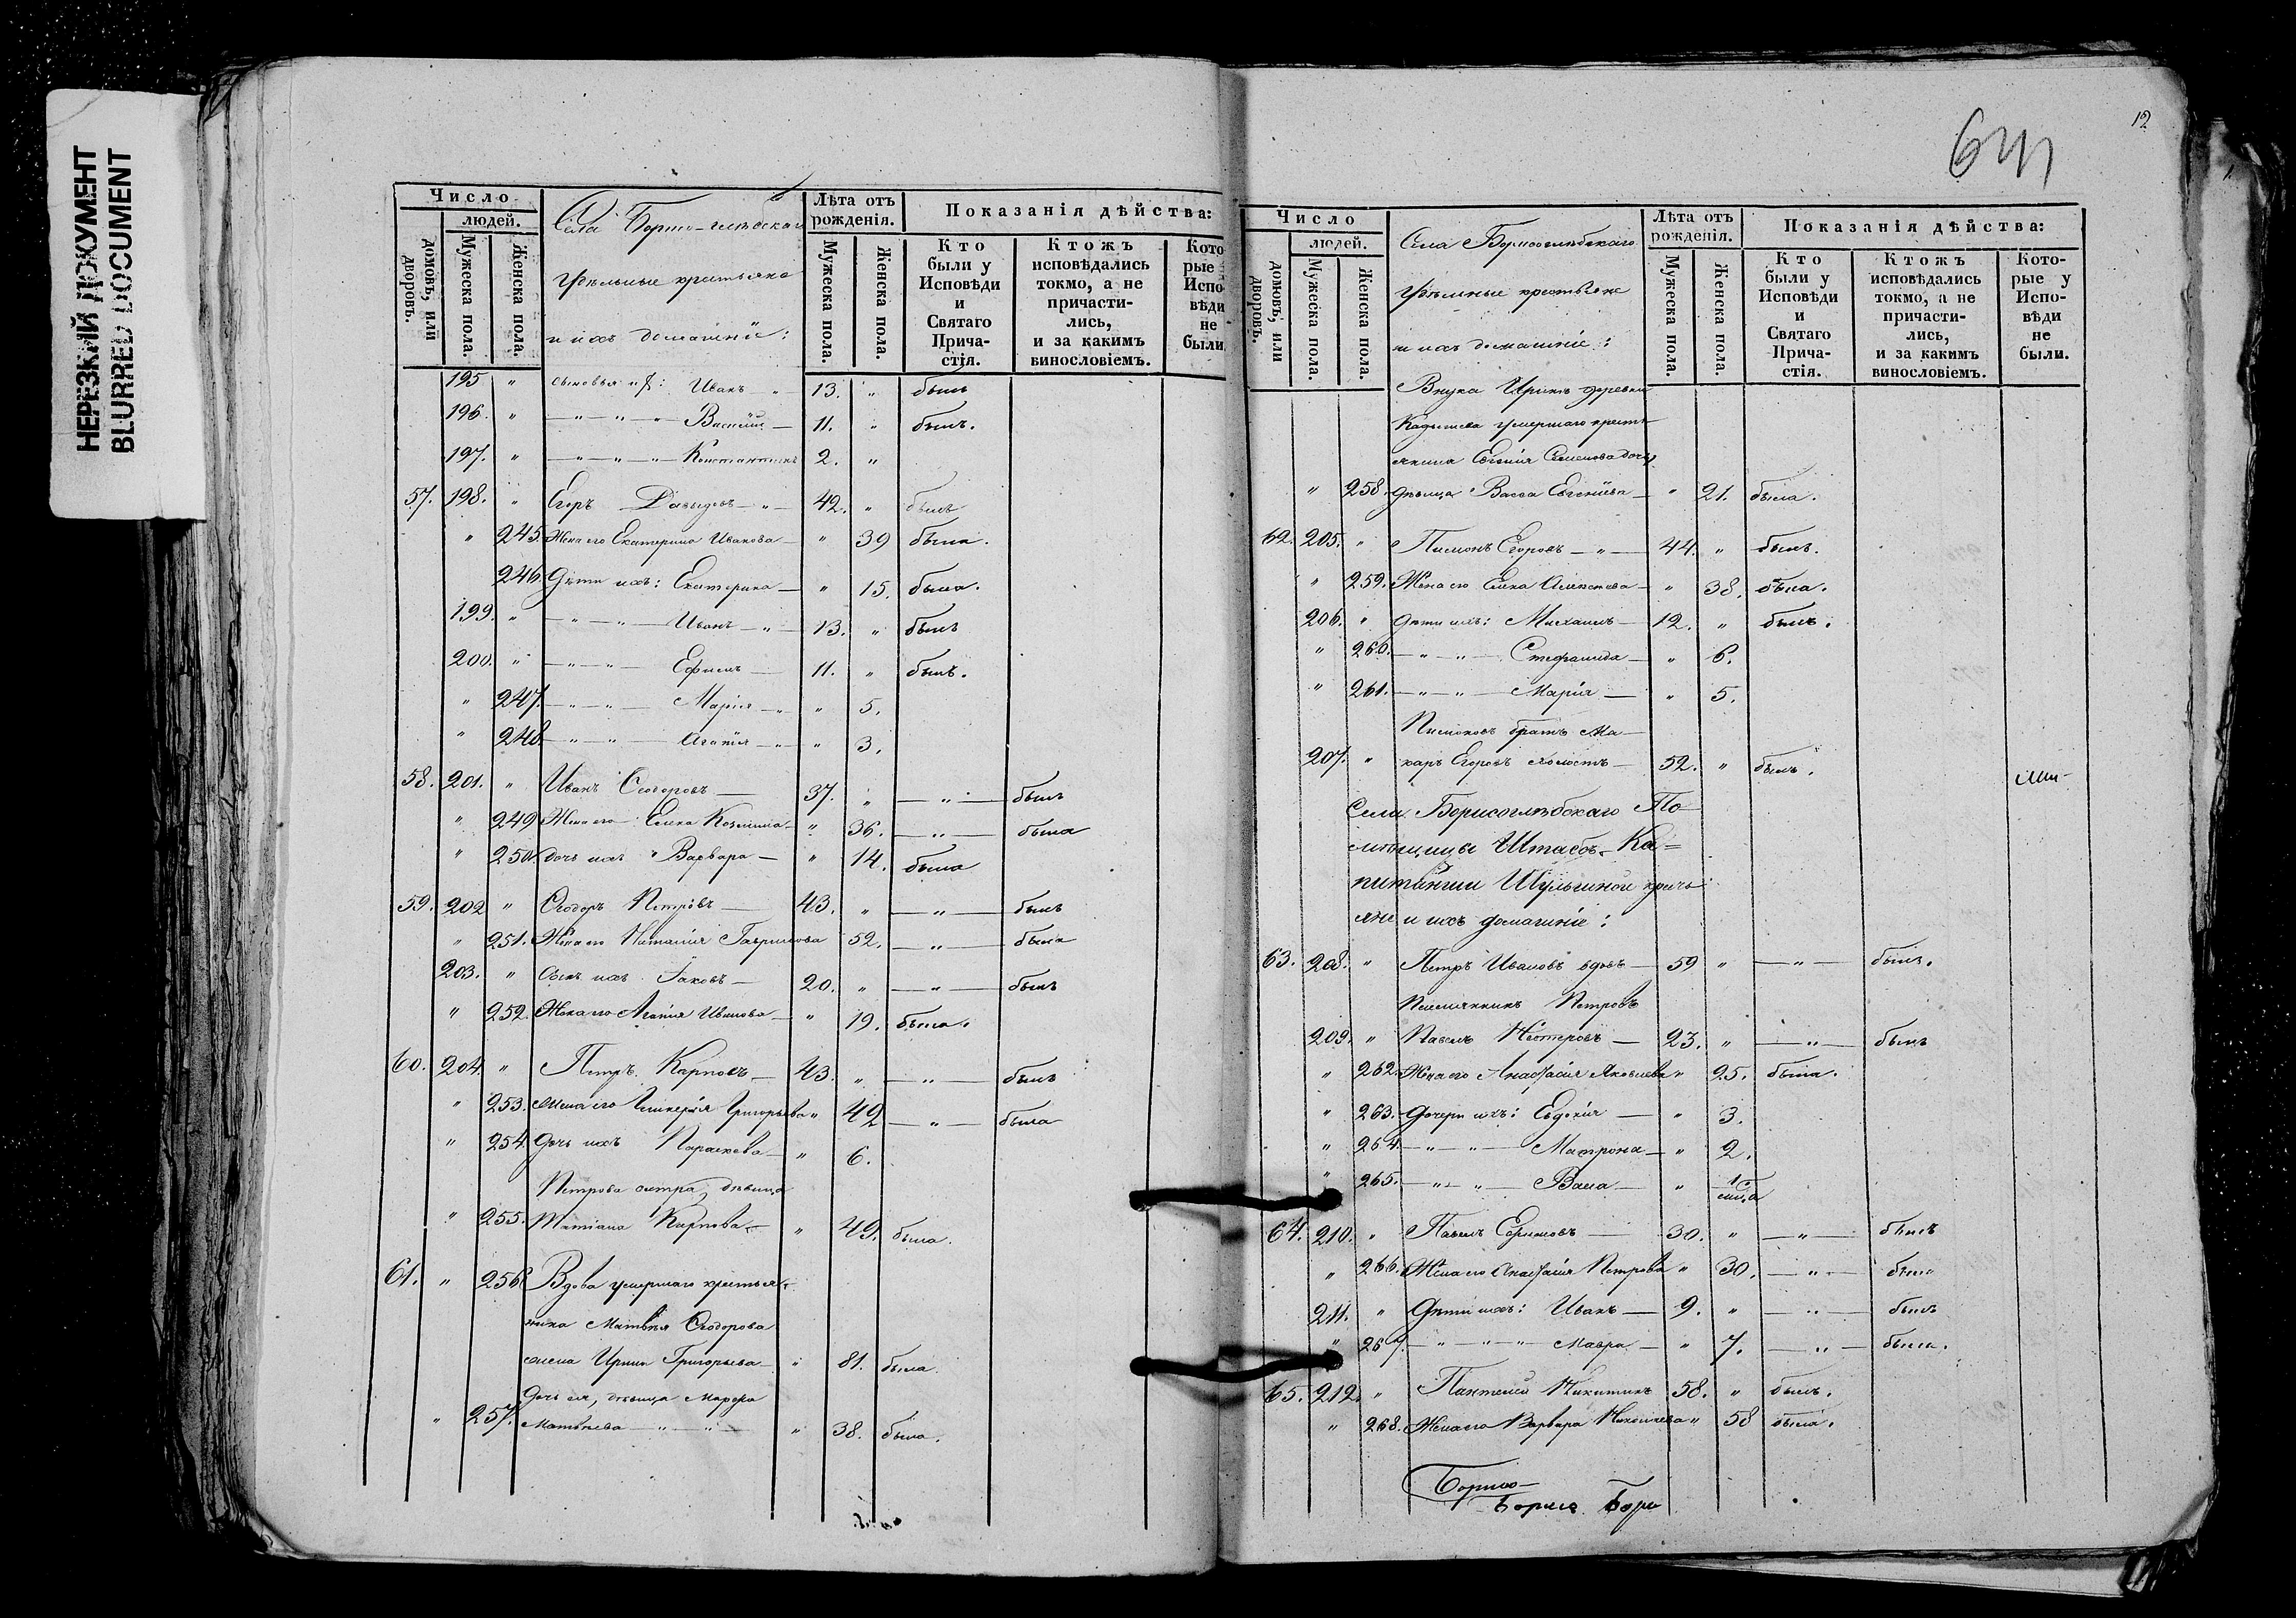 НЕРЕЗКИЙ ДОКУМЕНТ
BLURRED DOCUMENT
Число
людей.
домовъ, или дворовъ.
Мужеска пола.
Женска пола.
Села Борисо-глебскаго
удѣльные крестьяне
и ихъ домашніе:
Лѣта отъ рожденія.
Мужеска пола.
Женска пола.
Показанія дѣйства:
Кто были у Исповѣди и Святаго Прича-стія.
Ктожъ исповѣдались токмо, а не причасти-лись, и за какимъ винословіемъ.
Кото-рые Испо-вѣди не были.
195 " сыновья Иванъ 13. " былъ
196. " — " — " — " Василій — 11. " былъ.
197. " — " — " — " Константинъ 2. "
57. 198. " Егоръ Давыдовъ — " — 42. " былъ
" 245. Жена его Екатерина Иванова — " 39 была.
246 Дѣти ихъ: Екатерина — " 15. была.
199. " — " — " — Иванъ — " — 13. " былъ
200. " — " — " — Ефимъ — 11. " былъ.
" 247. — " — " — Марія — " " 5.
" 248 — " — " — Агапія — " " 3.
58. 201. " Иванъ Ѳеодоровъ — 37. " — " — былъ
" 249 Жена его Елена Козмина — " 36. — " — была
" 250. дочь ихъ Варвара — " 14. была
59. 202 " Ѳеодоръ Петровъ — 43. " — " — былъ
" 251. Жена его Наталія Гаврилова 52. — " — была
203. " Сынъ ихъ Іаковъ — 20. " — " — былъ
" 252. Жена его Агапія Иванова — " 19. была.
60. 204. " Петръ Карповъ — 43. " — " — былъ
" 253. Жена его Гликерія Григорьева " 42 — " — была
" 254. Дочь ихъ Параскева — " 6.
Петрова сестра, дѣвица
" 255. Татіана Карпова — " 49. была.
61. " 256 Вдова умершаго крестья-
нина Матвѣя Ѳеодорова
жена Ирина Григорьева — " 81. была.
Дочь ея, дѣвица Марѳа
" 257. Матвѣева — " — " — " 38. была.
12
Число
людей.
домовъ, или дворовъ.
Мужеска пола.
Женска пола.
Села Борисоглѣбскаго
удѣльные крестьяне
и ихъ домашніе:
Лѣта отъ рожденія.
Мужеска пола.
Женска пола.
Показанія дѣйства:
Кто были у Исповѣди и Святаго Прича-стія.
Ктожъ исповѣдались токмо, а не причасти-лись, и за какимъ винословіемъ.
Кото-рые у Испо-вѣди не были.
Внука Ирины деревни
умершаго кресть-
янина Евгенія Семенова дочь
" 258. дѣвица Васса Евгеніева — " 21. была.
62. 205. " Пименъ Егоровъ — " — 44. " былъ.
" 259. Жена его Елена Алексѣева — " 38. была.
206. " Дѣти ихъ: Михаилъ — 12. " былъ.
" 260. — " — " — Стефанида — " 6.
" 261. — " — " — Марія — " 5.
Пименовъ братъ Ма-
207. " каръ Егоровъ холостъ — 52. " былъ.
Села Борисоглѣбскаго По-
мѣщицы Штабсъ-Ка=
питанши Шульгиной кресть-
яне и ихъ домашніе:
63. 208. " Петръ Ивановъ вдовъ — 59 " — " — былъ.
Племянникъ Петровъ
209. " Павелъ Нестеровъ — 23. " — " — былъ
" 262. Жена его Анастасія Яковлева " 25. была.
" 263. Дочери ихъ: Евдокія — " 3.
" 264. — " — " — Матрона — " 2.
" 265. — " — " — Васса — "
64. 210. " Павелъ Ефимовъ — 30. " — " — былъ
" 266. Жена его Анастасія Петрова " 30. — " — была
211. " Дѣти ихъ: Иванъ — 9. " — " — былъ
" 267. — " — " — " — Мавра — " 7. — " — была.
65. 212. " Пантелей Никитинъ 58. " былъ.
" 268. Жена его Варвара Николаева " 58 была.